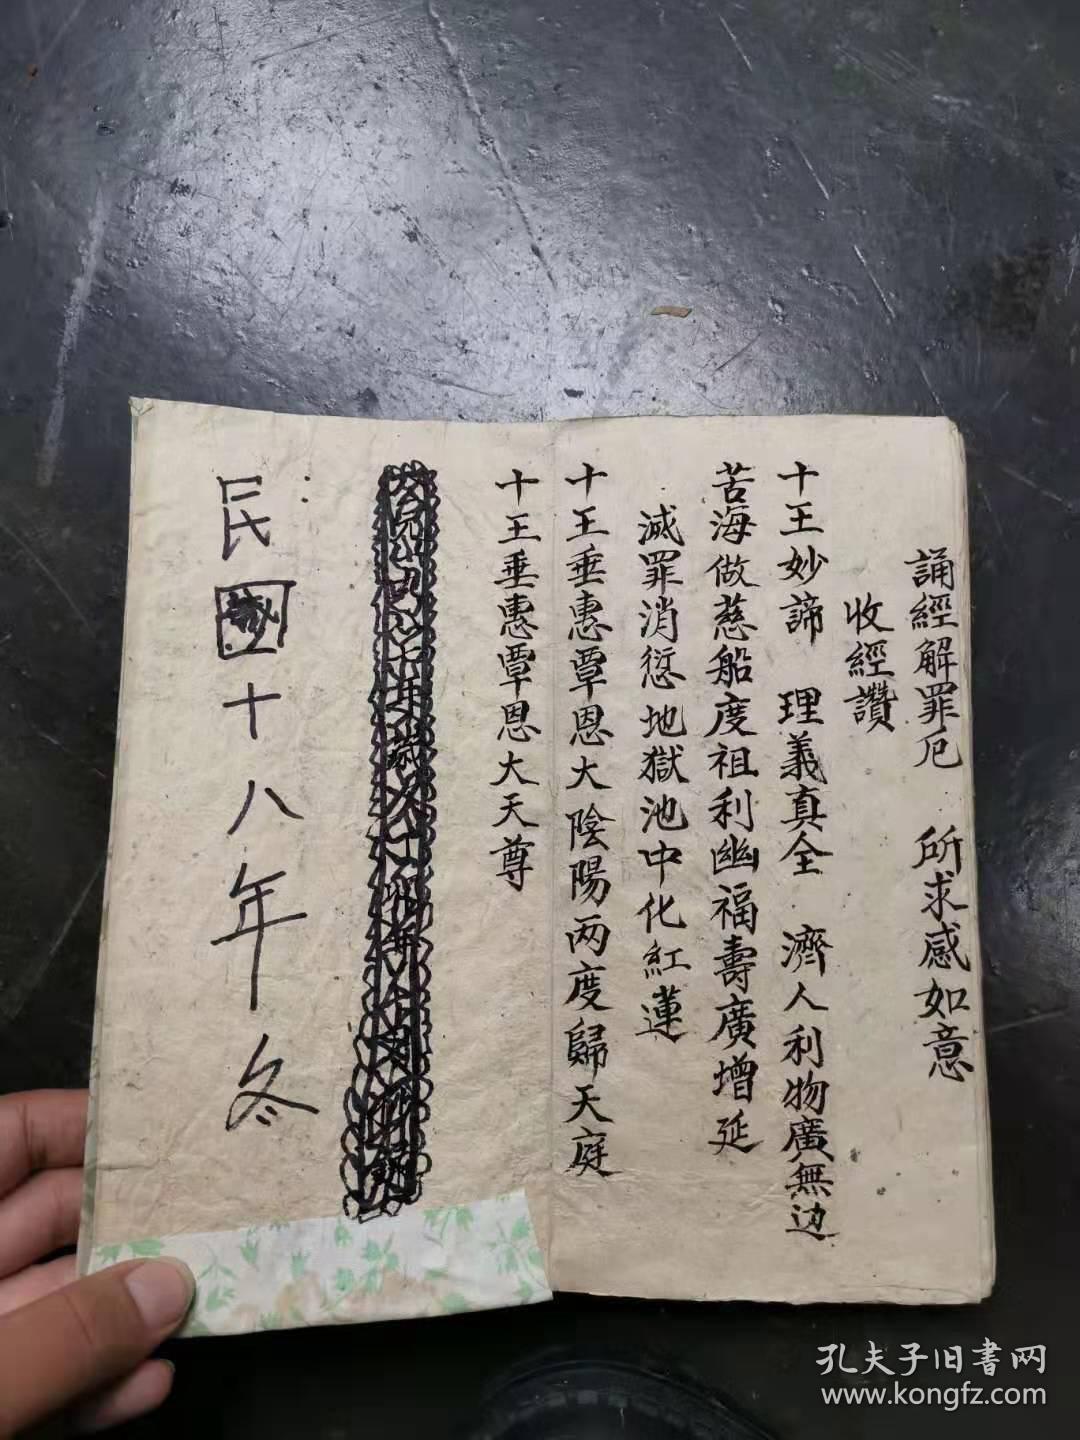 誦經解罪厄　所求感如意
收經讚
十王妙諦　理義真全　濟人利物廣無边
苦海做慈船度祖利幽福壽廣增延
滅罪消愆地獄池中化紅蓮
十王垂惠覃恩大陰陽两度歸天庭
十王垂惠覃恩大天尊
民國十八年冬
孔夫子旧書网
www.kongfz.com